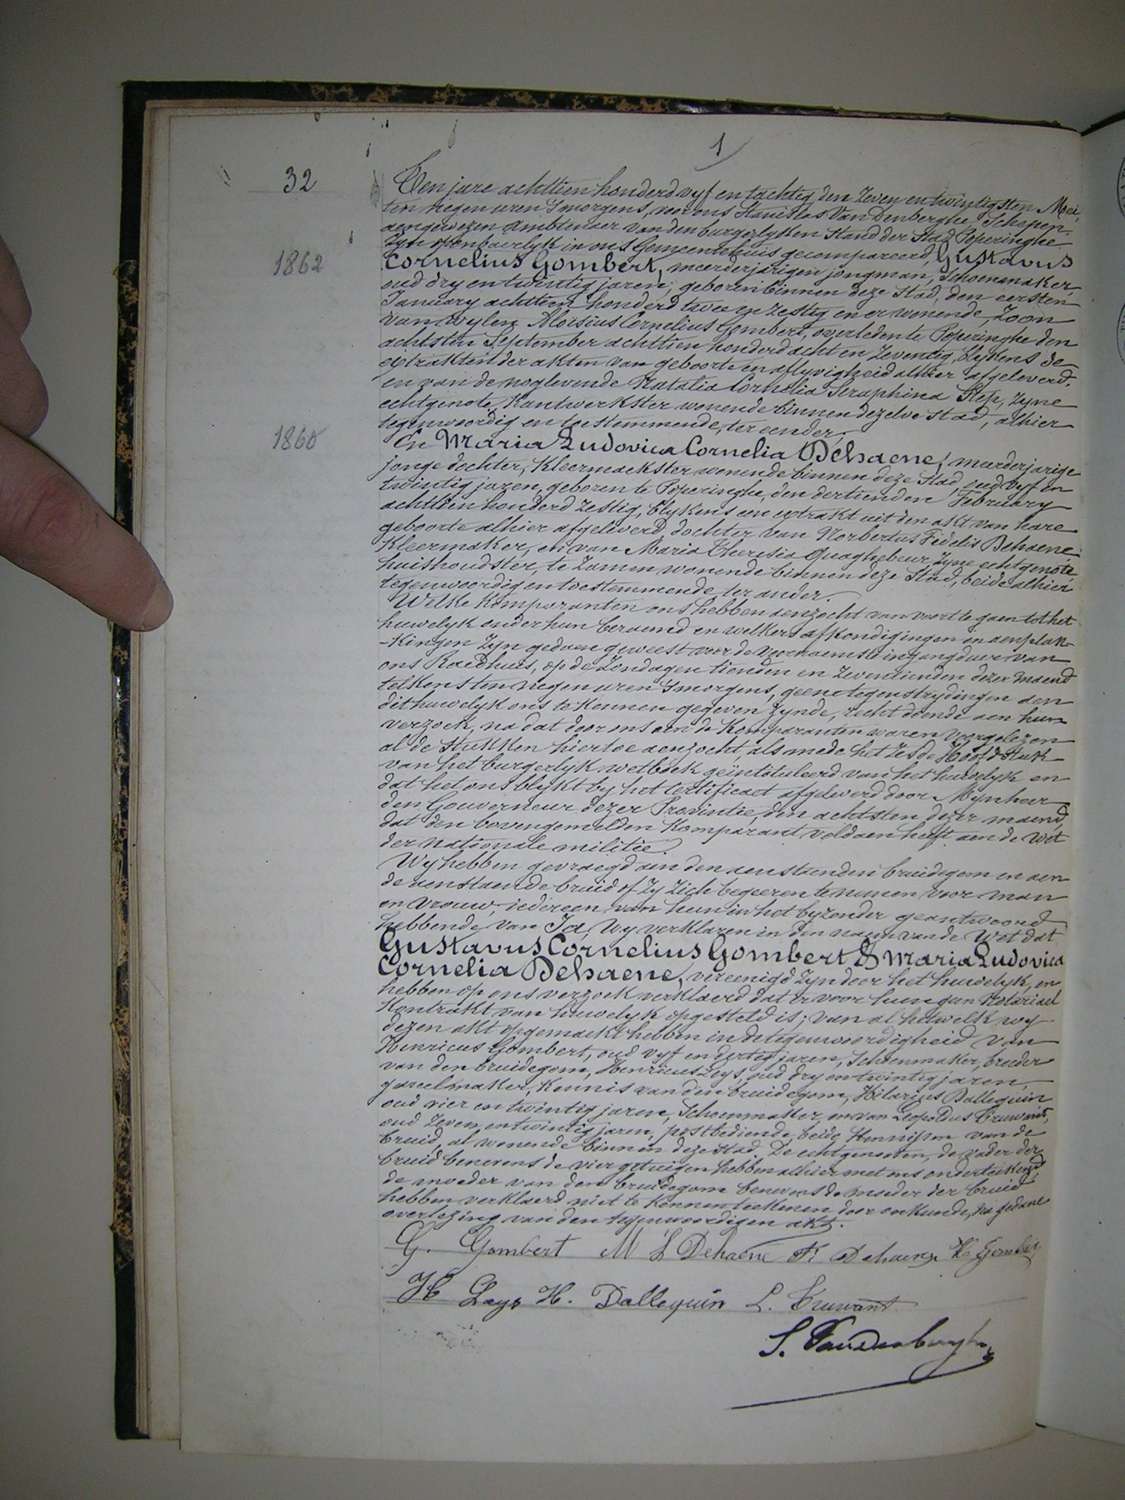 1
32
Ten jare achttien honderd vyf en tachtig den zeven en twintigsten Mei,
ten negen uren 's morgens, voor ons Stanislas Vandenberghe Schepen
aengewezen Ambtenaer van den burgerlyken Stand der Stad Poperinghe
Zyn openbaerlyk in ons Gemeentehuis gecompareerd, Gustavus
1862
Cornelius Gombert, meerderjarigen jongman, Schoenmaker
oud dry en twintig jaren, geboren binnen deze Stad, den eersten
January achttien honderd twee en zestig en er wonende, Zoon
van wylen Aloisius Cornelius Gombert, overleden te Poperinghe den
achtsten September achttien honderd acht en zeventig, blykens de
extrakten der akten van geboorte en aflyvigheid alhier afgeleverd,
en van de noglevende Natalia Cornelia Seraphina Step, zyne
echtgenote, Kantwerkster wonende binnen dezelve stad, alhier
tegenwoordig en toestemmende, ter eender,
1860
En Maria Ludovica Cornelia Dehaene, meerderjarige
jonge dochter, Kleermaekster wonende binnen deze Stad, oud vyf en
twintig jaren, geboren te Poperinghe, den dertienden February
achttien honderd zestig, blykens een extrakt uit den akt van hare
geboorte alhier afgeleverd, dochter van Norbertus Fidelis Dehaene
Kleermaker, en van Maria Theresia Quaghebeur, zyne echtgenote
huishoudster, te zamen wonende binnen deze Stad, beide alhier
tegenwoordig en toestemmende, ter ander.
Welke Komparanten ons hebben aenzocht van voort te gaen tot het
huwelyk onder hun beraemd en welkers afkondigingen en aenplak-
-kingen zyn gedaen geweest voor de voornaemste ingangdeur van
ons Raedhuis, op de zondagen tienden en zeventienden dezer maend
telkens ten negen uren 's morgens, geene tegenstrydingen aen
dit huwelyk ons te kennen gegeven zynde, recht doende aen hun
verzoek, na dat door ons aen de Komparanten waren voorgelezen
al de stukken hiertoe aenzocht als mede het zesde Hoofdstuk
van het burgerlyk wetboek geïntituleerd van het huwelyk en
dat het ons blykt by het certificaet afgeleverd door Mynheer
den Gouverneur dezer Provintie, den achtsten dezer maend,
dat den bovengemelden Komparant voldaen heeft aen de Wet
der nationale militie.
Wy hebben gevraegd aen den aenstaenden bruidegom en aen
de aenstaende bruid of zy zich begeeren te nemen voor man
en vrouw, iedereen van hun in het byzonder geantwoord
hebbende van Ja, Wy verklaren in den naem van de Wet dat
Gustavus Cornelius Gombert & Maria Ludovica
Cornelia Dehaene, vereenigd zyn door het huwelyk, en
hebben op ons verzoek verklaerd dat er voor hun geen Notariael
Kontrakt van huwelyk opgesteld is; van al hetwelk wy
dezen akt opgemaekt hebben in de tegenwoordigheid van
Henricus Gombert, oud vyf en dertig jaren, Schoenmaker, broeder
van den bruidegom, Henricus Leys, oud dry en twintig jaren,
gareelmaker, Kennis van den bruidegom, Hilarius Dallequin
oud vier en twintig jaren, Schoenmaker, en van Leopoldus Truwant,
oud zeven en twintig jaren, postbediende, beide Kennissen van de
bruid, al wonende binnen deze stad. De echtgenoten, de vader der
bruid benevens de vier getuigen hebben alhier met ons onderteekend,
de moeder van den bruidegom benevens de moeder der bruid
hebben verklaerd niet te konnen teekenen door onkunde, na gedane
overlezing van den tegenwoordigen akt.
G. Gombert M L Dehaene F. Dehaene H Gombert
H Leys H. Dallequin L. Truwant
S. Vandenberghe